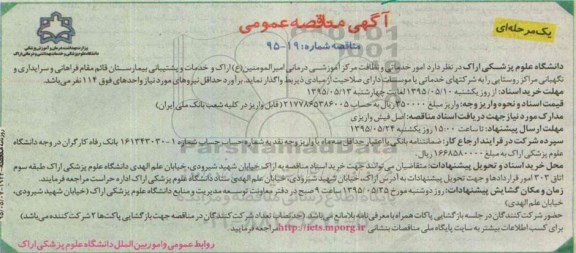 آگهی مناقصه عمومی
یک مرحله‌ای
مناقصه شماره: ۱۹-۹۵
دانشگاه علوم پزشکی اراک در نظر دارد امور خدماتی و نظافت مرکز آموزشی درمانی امیرالمومنین(ع) اراک و خدمات و پشتیبانی بیمارستان قائم مقام فراهانی و سرایداری و
نگهبانی مراکز روستایی را به شرکتهای خدماتی یا موسسات دارای صلاحیت از مبادی ذیربط واگذار نماید. برآورد حداقل نیروهای مورد نیاز واحدهای فوق ۱۱۴ نفر می‌باشد.
مهلت خرید اسناد: از روز یکشنبه ۱۳۹۵/۰۵/۱۰ لغایت چهارشنبه ۱۳۹۵/۰۵/۱۳
قیمت اسناد و نحوه واریز وجه: واریز مبلغ ۳۵۰۰۰۰ ریال به حساب ۲۱۷۷۸۶۵۳۸۶۰۰۵ (قابل واریز در کلیه شعب بانک ملی ایران)
مدارک مورد نیاز جهت دریافت اسناد مناقصه: اصل فیش واریزی
مهلت ارسال پیشنهاد: تا ساعت ۱۵:۰۰ روز یکشنبه ۱۳۹۵/۰۵/۲۴
سپرده شرکت در فرایند ارجاع کار: ضمانتنامه بانکی با اعتبار حداقل سه ماه یا واریز وجه نقد به شماره حساب شماره ۱۶۱۳۴۳۰۳۰۰۱ بانک رفاه کارگران در وجه دانشگاه
علوم پزشکی اراک به مبلغ ۱۶۶۸۵۸۰۰۰۰ ریال
محل خرید اسناد و تحویل پیشنهادات: متقاضیان می‌توانند جهت خرید اسناد مناقصه به اراک خیابان شهید شیرودی، خیابان علم الهدی دانشگاه علوم پزشکی اراک طبقه سوم
اتاق ۳۰۳ امور قراردادها و جهت تحویل پیشنهادات به آدرس اراک، خیابان شهید شیرودی، خیابان علم الهدی ستاد دانشگاه علوم پزشکی اراک اداره حراست مراجعه فرمایند.
زمان و مکان گشایش پیشنهادات: روز دوشنبه مورخ ۱۳۹۵/۰۵/۲۵ ساعت ۹ صبح در دفتر معاونت توسعه مدیریت و منابع دانشگاه علوم پزشکی اراک (خیابان شهید شیرودی،
خیابان علم الهدی)
حضور شرکت کنندگان در جلسه بازگشایی پاکات همراه با معرفی نامه بلامانع می‌باشد. (حدنصاب تعداد شرکت کنندگان در مناقصه جهت بازگشایی پاکت‌ها ۲ شرکت کننده می‌باشد)
جهت کسب اطلاعات بیشتر به سایت پایگاه ملی مناقصات بنشانی http://iets.mporg.ir مراجعه فرمایید.
روابط عمومی و امور بین الملل دانشگاه علوم پزشکی اراک